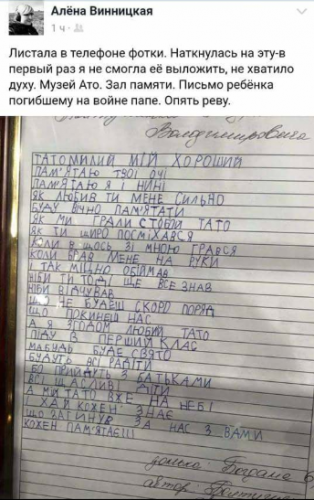 Алёна Винницкая
1 ч
Листала в телефоне фотки. Наткнулась на эту-в
первый раз я не смогла её выложить, не хватило
духу. Музей Ато. Зал памяти. Письмо ребёнка
погибшему на войне папе. Опять реву.
Володимировича
ТАТО МИЛИЙ МІЙ ХОРОШИЙ
ПАМ'ЯТАЮ ТВОЇ ОЧІ
ПАМ'ЯТАЮ Я І НИНІ
ЯК ЛЮБИВ ТИ МЕНЕ СИЛЬНО
БУДУ ВІЧНО ПАМ'ЯТАТИ
ЯК МИ ГРАЛИ С ТОБОЙ ТАТО
ЯК ТИ ЩИРО ПОСМІХАВСЯ
КОЛИ В ЩОСЬ ЗІ МНОЮ ГРАВСЯ
КОЛИ БРАВ МЕНЕ НА РУКИ
І ТАК МІЦНО ОБІЙМАВ
НІБИ ТИ ТОДІ ЩЕ ВСЕ ЗНАВ
НІБИ ВІДЧУВАВ
ЩО НЕ БУДЕШ СКОРО ПОРЯД
ЩО ПОКИНЕШ НАС
А Я ЗГОДОМ ЛЮБИЙ ТАТО
ПІДУ В ПЕРШИЙ КЛАС
МАБУДЬ БУДЕ СВЯТО
БУДУТЬ ВСІ РАДІТИ
БО ПРИЙДУТЬ З БАТЬКАМИ
ВСІ ЩАСЛИВІ ДІТИ
А МІЙ ТАТО ВЖЕ НА НЕБІ
ХАЙ КОЖЕН ЗНАЄ
ЩО ЗАГИНУВ ЗА НАС З ВАМИ
КОЖЕН ПАМ'ЯТАЄ!!!
донька Богдана
автор